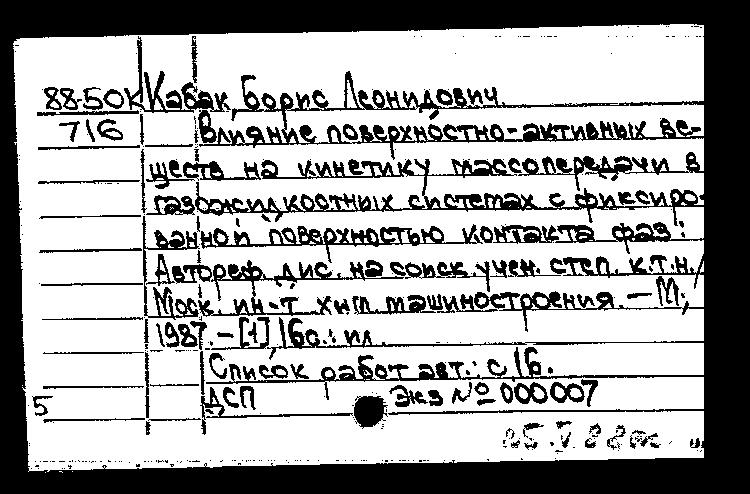 88-50К Кабак, Борис Леонидович.
716 Влияние поверхностно-активных ве-
ществ на кинетику массопередачи в
газожидкостных системах с фиксиро-
ванной поверхностью контакта фаз:
Автореф. дис. на соиск. учен. степ. к.т.н./
Моск. ин-т хим. машиностроения. – М.,
1987. – [1], 16 с.: ил.
Список работ авт.: с. 16.
5 ДСП Экз № 000007
25.V.88